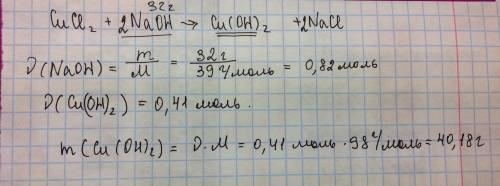 32г
CuCl₂ + 2NaOH → Cu(OH)₂ + 2NaCl
ν(NaOH) = m/M = 32г/39г/моль = 0,82 моль
ν(Cu(OH)₂) = 0,41 моль.
m(Cu(OH)₂) = ν · M = 0,41 моль · 98г/моль = 40,18г